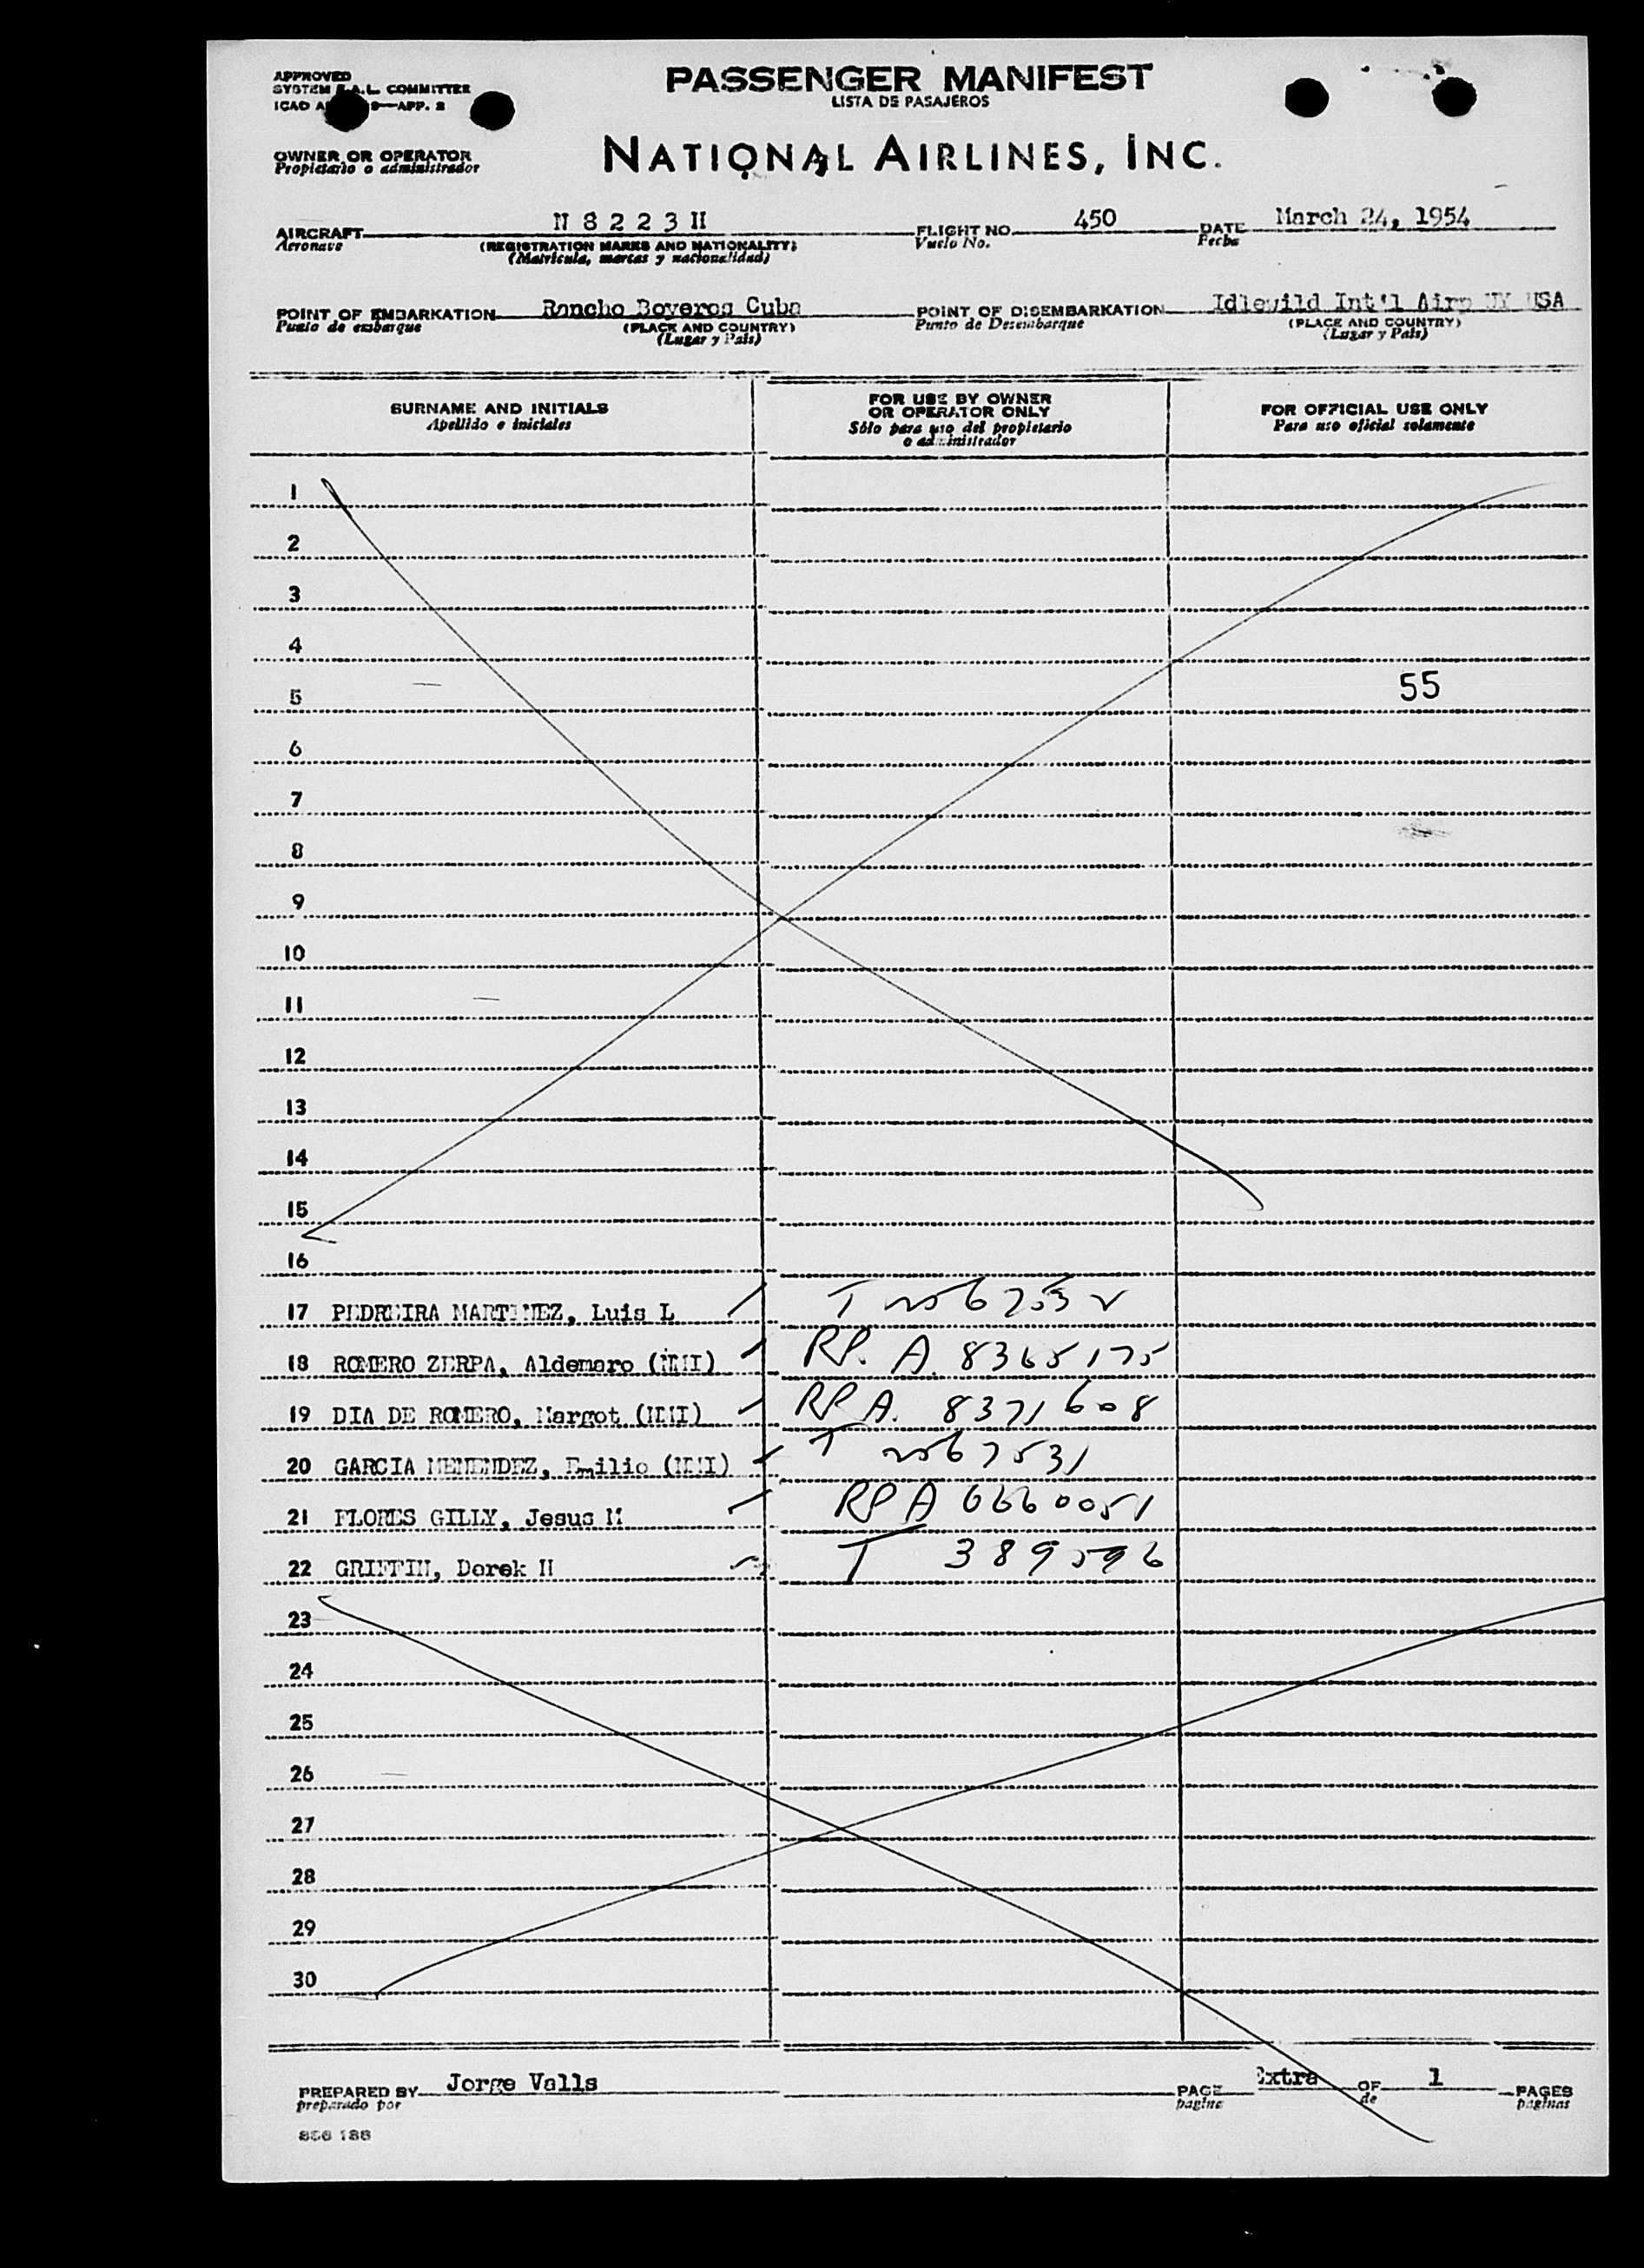 APPROVED
SYSTEM F.A.L. COMMITTEE
ICAO 9—APP. 2
PASSENGER MANIFEST
LISTA DE PASAJEROS
OWNER OR OPERATOR
Propietario o administrador
NATIONAL AIRLINES, INC.
AIRCRAFT N 8 2 2 3 H FLIGHT NO. 450 DATE March 24, 1954
Aeronave (REGISTRATION MARKS AND NATIONALITY) Vuelo No. Fecha
(Matricula, marcas y nacionalidad)
POINT OF EMBARKATION Rancho Boyeros Cuba POINT OF DISEMBARKATION Idlewild Int'l Airp NY USA
Punto de embarque (PLACE AND COUNTRY) Punto de Desembarque (PLACE AND COUNTRY)
(Lugar y Pais) (Lugar y Pais)
SURNAME AND INITIALS FOR USE BY OWNER OR OPERATOR ONLY FOR OFFICIAL USE ONLY
Apellido e iniciales Sólo para uso del propietario o administrador Para uso oficial solamente
1
2
3
4
5 55
6
7
8
9
10
11
12
13
14
15
16
17 PEDREIRA MARTINEZ, Luis L T
18 ROMERO ZERPA, Aldemaro (NMI) RP. A. 8365175
19 DIA DE ROMERO, Margot (NMI) RP A. 8371608
20 GARCIA MENENDEZ, Emilio (NMI) T
21 FLORES GILLY, Jesus M RP A 6660051
22 GRIFFIN, Derek H T 389596
23
24
25
26
27
28
29
30
PREPARED BY Jorge Valls PAGE Extra OF 1 PAGES
preparado por pagina de paginas